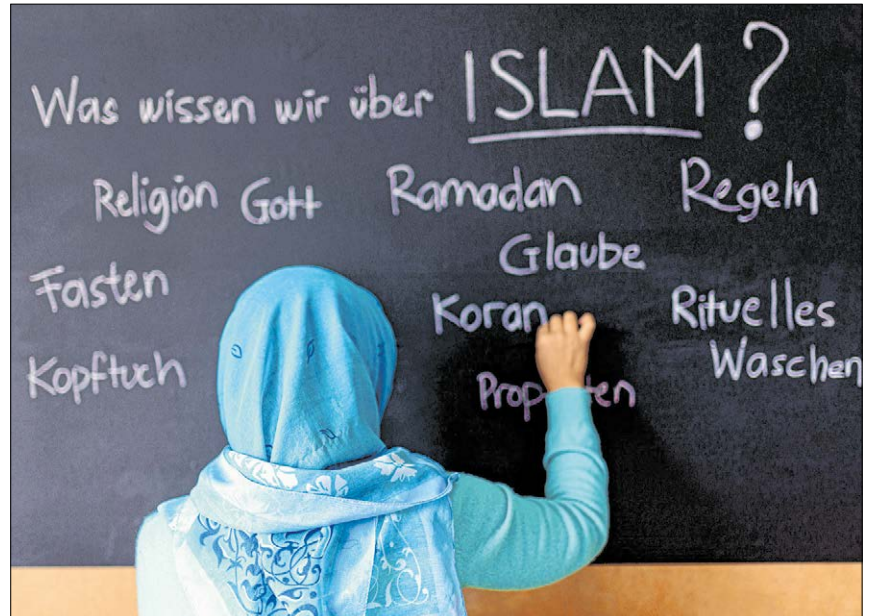 Was wissen wir über ISLAM?
Religion Gott Ramadan Regeln
Glaube
Fasten Koran Rituelles
Waschen
Kopftuch